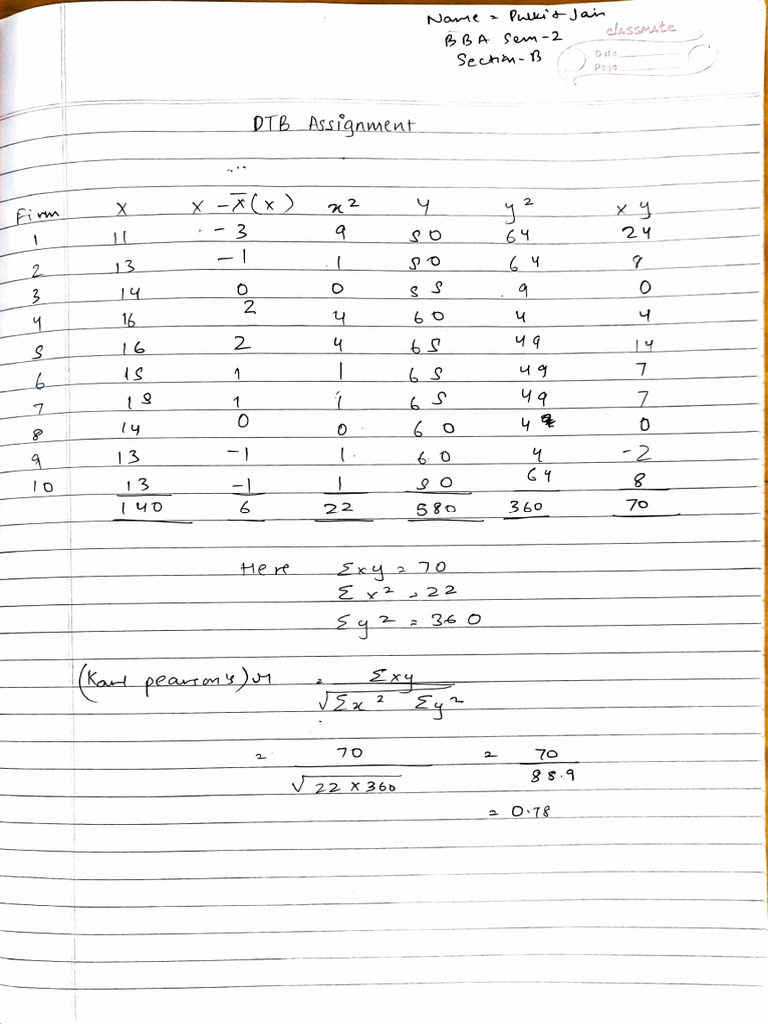 Name = Pulkit Jain
BBA Sem-2
Section-B
classmate
Date
Page
DTB Assignment
...
Firm X X - X̅(x) x² Y y² xy
1 11 -3 9 50 64 24
2 13 -1 1 50 64 8
3 14 0 0 55 9 0
4 16 2 4 60 4 4
5 16 2 4 65 49 14
6 15 1 1 65 49 7
7 15 1 1 65 49 7
8 14 0 0 60 4 0
9 13 -1 1 60 4 -2
10 13 -1 1 50 64 8
140 6 22 580 360 70
Here Σxy = 70
Σx² = 22
Σy² = 360
(Karl pearson's) r = Σxy / √Σx² Σy²
= 70 / √22 × 360 = 70 / 88.9
= 0.78